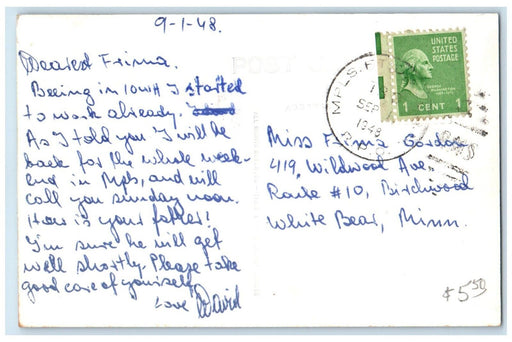 9-1-48.
Dearest Frima.
Beeing in IOWA I started
to work already.
As I told you I will be
back for the whole week-
end in Mpls, and will
call you sunday noon.
How is your father!
I'm sure he will get
well shortly. Please take
good care of yourself.
Love David
POST
MPLS.
1
SEP
1948
R.P.O.
UNITED
STATES
POSTAGE
1 CENT 1
RMS
Miss Frima Gordon
419, Wildwood Ave.
Route #10, Birchwood
White Bear, Minn.
$5.50